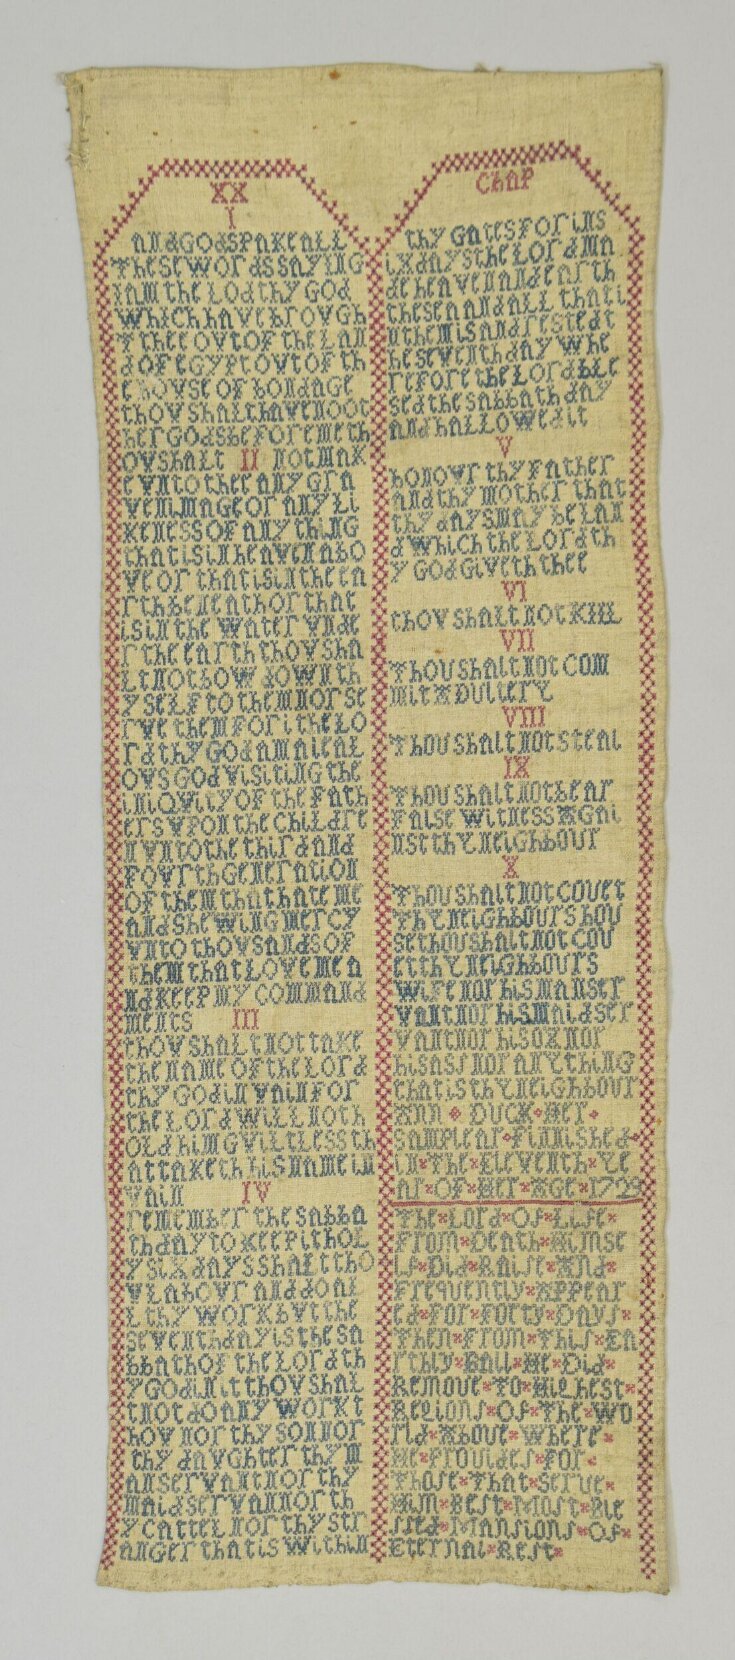 XX
I
andGodspakeall
ThesewordssayinG
Iamthe LodthyGod
Which have brovGh
T thee ovt of the Lan
d of EGypt ovt of th
e hovse of bondaGe
thov shalt have noot
her Gods before me th
ov shalt II not mak
e vnto thee any Gra
ven imaGe or any Li
keness of any thinG
that is in heaven abo
ve or that is in the ea
rth beneath or that
is in the water vnde
r the earth thov sha
Lt not bow down th
y seLf to them nor se
rve them for i the Lo
rd thy God am a ieaL
ovs God visitinG the
iniqvity of the fath
ers vpon the chiLdre
n vnto the third and
fovrth Generation
of them that hate me
and shewinG mercy
vnto thovsands of
them that Love me a
nd keep my command
ments III
thov shaLt not take
the name of the Lord
thy God in vain for
the Lord wiLL not h
oLd him GviLtLess th
at taketh his name in
vain IV
remember the sabba
th day to keep it hoL
y six days shaLt tho
v Labovr and do aL
L thy work bvt the
seventh day is the sa
bbath of the Lord th
y God in it thov shaL
t not do any work t
hov nor thy son nor
thy davGhter thy m
anservant nor thy
maid servan nor th
y catteL nor thy str
anGer that is within
Chap
thy Gates for in s
ix days the Lord ma
de heaven and earth
the sea and aLL that i
n them is and rested t
he seventh day whe
refore the Lord bLe
sed the sabbath day
and haLLowed it
V
honovr thy father
and thy mother that
thy days may be Lan
d which the Lord th
y God Giveth thee
VI
thov shalt not kill
VII
Thou shalt not Com
mit Adultery
VIII
Thou shalt not steal
IX
Thou shalt not bear
false witness Agai
nst thy neighbour
X
Thou shalt not covet
Thy neighbours hou
se thou shalt not cov
et thy neighbours
wife nor his manser
vant nor his maidser
vant nor his ox nor
his ass nor any thing
that is thy neighbour
Ann Duck Her
Samplear Finnished
in The Eleventh Ye
ar Of Her Age 1729
The Lord Of Life
From Death Himse
lf Did Raise And
Frequently Appear
ed For Forty Days
Then From This Ea
rthly Ball He Did
Remove To Highest
Regions Of The Wo
rld Above Where
He Provides For
Those That Serve
Him Best Most Ble
ssed Mansions Of
Eternal Rest